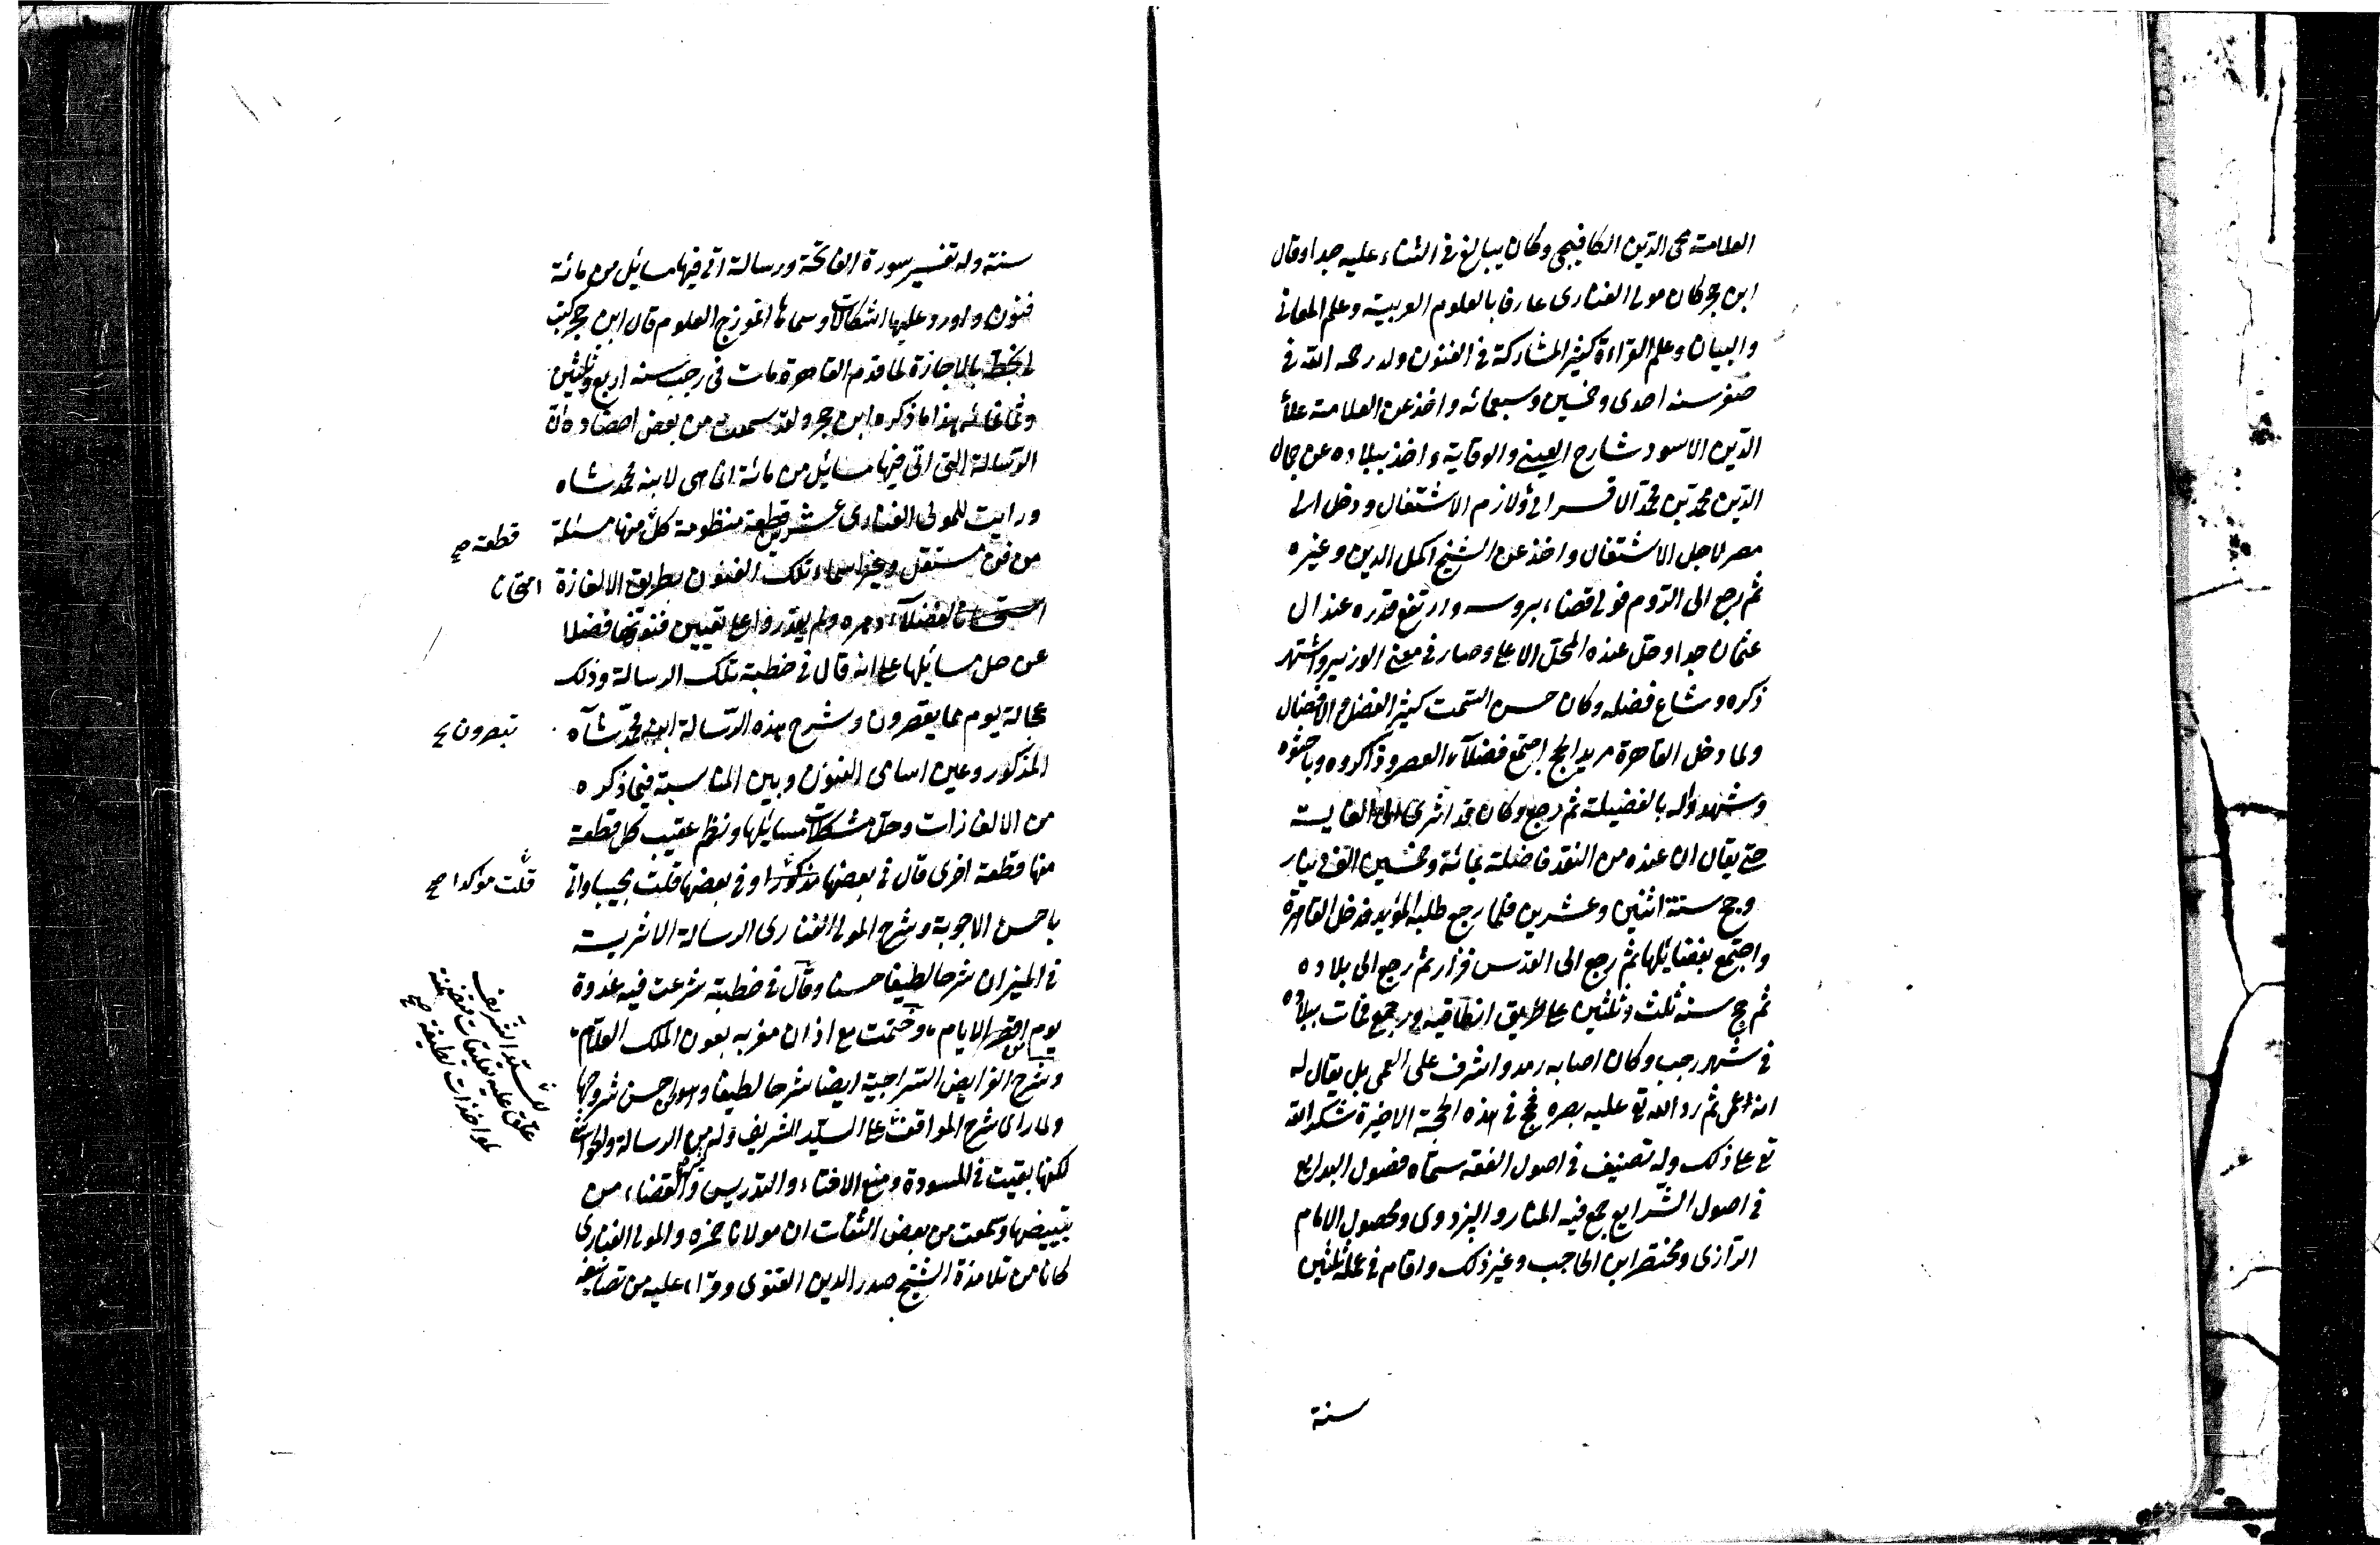 العلامة محى الدين الكافيجى وكان يبالغ فى الثناء عليه جدا وقال
ابن حجر كان مولى الفنارى عارفا بالعلوم العربية وعلم المعانى
والبيان وعلم القراءة كثير المشاركة فى الفنون ولد رحمه الله فى
صفر سنه احدى وخمسين وسبعمائه واخذ عن العلامة علاء
الدين الاسود شارح المغنى والوقاية واخذ ببلاده عن جمال
الدين محمد بن محمد الاقسرائى ولازم الاشتغال ودخل الى
مصر لاجل الاشتغال واخذ عن الشيخ اكمل الدين وغيره
ثم رجع الى الروم فولى قضاء بروسه وارتفع قدره عند ال
عثمان جدا وحل عنده المحل الاعلى وصار فى معنى الوزير واشتهر
ذكره وشاع فضله وكان حسن السمت كثير الفضل والافضال
ولما دخل القاهرة مريد الحج اجتمع فضلاء العصر وذاكروه وباحثوه
وشهدوا له بالفضيلة ثم رجع وكان قد اثرى الى الغاية
حتى يقال ان عنده من النقد خاصة مائة وخمسين الف دينار
وحج سنة اثنين وعشرين فلما رجع طلبه المؤيد فدخل القاهرة
واجتمع بفضلائها ثم رجع الى القدس فزار ثم رجع الى بلاده
ثم حج سنه ثلث وثلثين على طريق انطاقيه ورجع فمات ببلاده
فى شهر رجب وكان اصابه رمد واشرف على العمى بل يقال له
انه اعمى ثم رد الله تع عليه بصره فحج فى هذه الحجة الاخيرة شكرا لله
تع على ذلك وله تصنيف فى اصول الفقه سماه فصول البدايع
فى اصول الشرايع جمع فيه المنار والبزدوى ومحصول الامام
الرازى ومختصر ابن الحاجب وغير ذلك واقام فى عمله ثلثين
سنة
سنة وله تفسير سورة الفاتحة ورسالة اتى فيها مسائل من مائة
فنون واورد عليها اشكالات وسماها انموزج العلوم قال ابن حجر كتب
لى بخطه بالاجازة لما قدم القاهرة مات فى رجب سنه اربع وثلثين
وثمانمائه هذا ما ذكره ابن حجر ولقد سمعت من بعض احفاده ان
الرسالة التى اتى فيها مسائل من مائة انما هى لابنه محمد شاه
ورايت للمولى الفنارى عشرين قطعة منظومة كل منها مسئلة
قطعة صح
من فن مستقل وغير اسماء تلك الفنون بطريق الالغازة
امتحانا
امتحانا لفضلاء دهره ولم يقدروا على تعيين فنونها فضلا
عن حل مسائلها على انه قال فى خطبة تلك الرسالة وذلك
عجالة يوم مما يقصرون وشرح هذه الرسالة ابنه محمد شاه
تبصرون صح
المذكور وعين اسامى الفنون وبين المناسبة فيما ذكره
من الالغازات وحل مشكلات مسائلها ونظم عقيب كل قطعة
منها قطعة اخرى قال فى بعضها مذكورا وفى بعضها قلت مجيبا واتى
قلت مؤكدا صح
باحسن الاجوبة وشرح المولى الفنارى الرسالة الاثيرية
فى الميزان شرحا لطيفا حسنا وقال فى خطبته شرعت فيه غدوة
يوم من اقصر الايام وختمت مع اذان مغربه بعون الملك العلام
وشرح الفرايض السراجية ايضا شرحا لطيفا وهو احسن شروحها
ولما راى شرح المواقف
للسيد الشريف
علق عليه تعليقات متضمنة
لمواخذات لطيفة صح
لكنها بقيت فى المسودة ومنع الافتاء والتدريس والقضاء من
تبييضها وسمعت من بعض الثقات ان مولانا حمزه والمولى الفنارى
كانا من تلامذة الشيخ صدر الدين القنوى وقرا عليه من تصانيفه